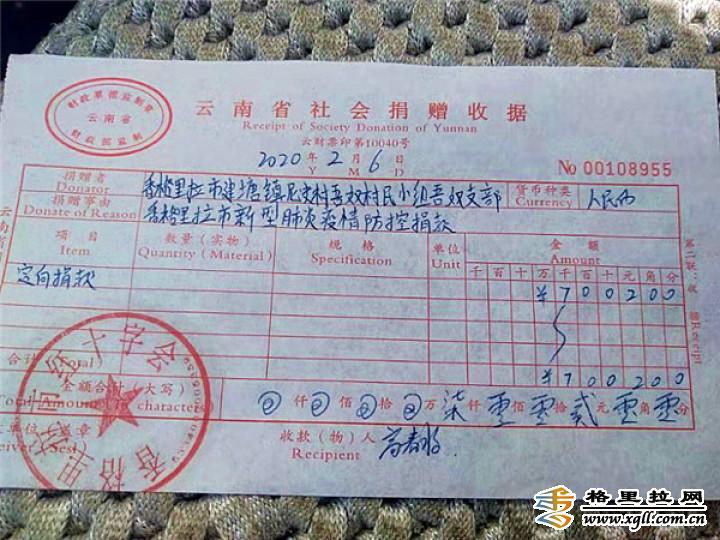 财政票据监制章
云南省
财政部监制
云南省社会捐赠收据
Receipt of Society Donation of Yunnan
云财票印第10040号
2020年2月6日
Y M D
No 00108955
捐赠者 香格里拉市建塘镇尼史村吾奴村民小组吾奴支部 货币种类 人民币
Donator Currency
捐赠事由 香格里拉市新型肺炎疫情防控捐款
Donate of Reason
项目 数量(实物) 规格 单位 金额
Item Quantity (Material) Specification Unit Amount
千百十万千百十元角分
定向捐款 ¥700200
合计 Total ¥700200
金额合计(大写) 仟佰拾万柒仟零佰零拾贰元零角零分
Total Amount (in characters)
收款(物)人
Recipient
第二联:收据 Receipt
红十字会
香格里
格里拉网
www.xgll.com.cn